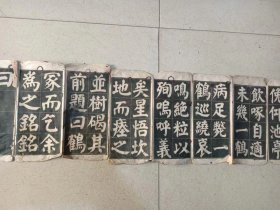 俯仰池亭
飲啄自適
未幾一鶴
病足斃一
鶴巡繞哀
鳴絶粒以
殉嗚呼義
矣星悟坎
地而瘞之
並樹碣其
前題曰鶴
冢而乞余
為之銘銘
曰